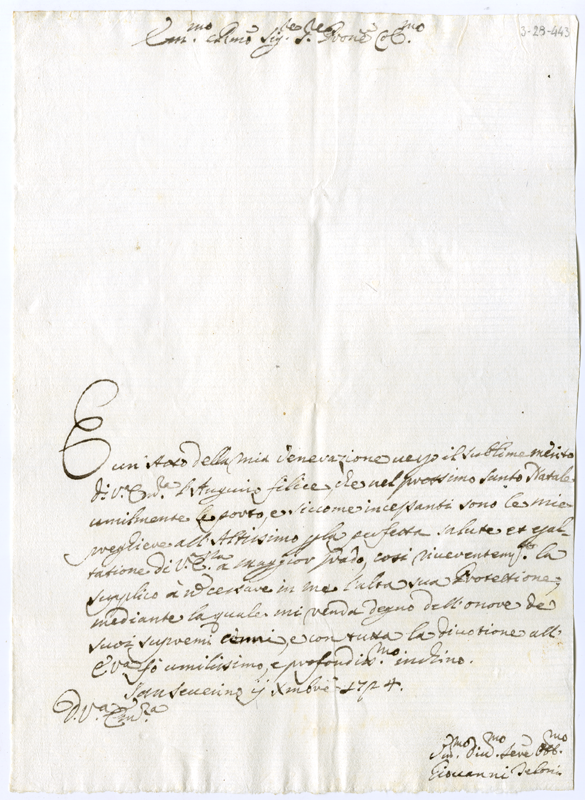 3-28-443
Em.mo e Rmo Sig.re Sig.re Prone Col.mo
È un atto della mia venerazione verso il sublime merito
di V.a Em.za l'Augurio felice, che nel prossimo santo Natale
umilmente le porto, e siccome incessanti sono le mie
preghiere all'Altissimo p la perfetta salute et esal-
tatione di V. a maggior grado, così riverentem.te la
supplico à nō cessare in me l'alta sua Protettione,
mediante la quale mi renda degno dell'onore de
suoi supremi cenni, e con tutta la divotione all
E.va fò umilissimo, e profondiss.mo inchino.
San Severino Xmbre 1724.
D. V.a Em.za
Um.mo Div.mo Serv.e Obb.mo
Giovanni